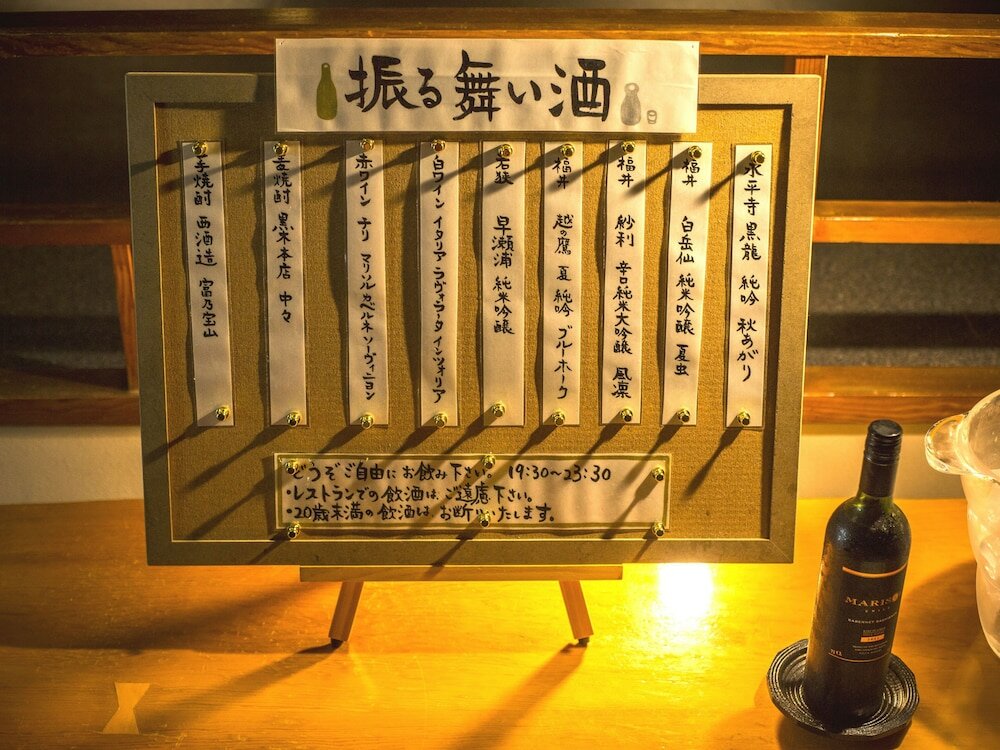 振る舞い酒
永平寺 黒龍 純吟 秋あがり
福井 白岳仙 純米吟醸 夏虫
福井 紗利 辛口純米大吟醸 風凛
福井 越の鷹 夏 純吟 ブルーホーク
若狭 早瀬浦 純米吟醸
白ワイン イタリア ラヴォラータ インツォリア
赤ワイン チリ マリソル カベルネソーヴィニヨン
麦焼酎 黒木本店 中々
芋焼酎 西酒造 富乃宝山
どうぞご自由にお飲み下さい。 19:30〜23:30
・レストランでの飲酒は、ご遠慮下さい。
・20歳未満の飲酒は お断りいたします。
CABERNET SAUVIGNON